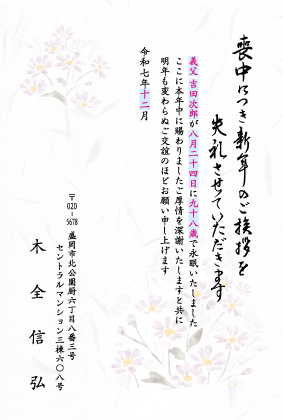 喪中につき新年のご挨拶を
失礼させていただきます
義父 吉田次郎が八月二十四日に九十八歳で永眠いたしました
ここに本年中に賜わりましたご厚情を深謝いたしますと共に
明年も変わらぬご交誼のほどお願い申し上げます
令和七年十二月
〒020-5678
盛岡市北公園厨六丁目八番三号
セントラルマンション三棟六〇八号
木全信弘